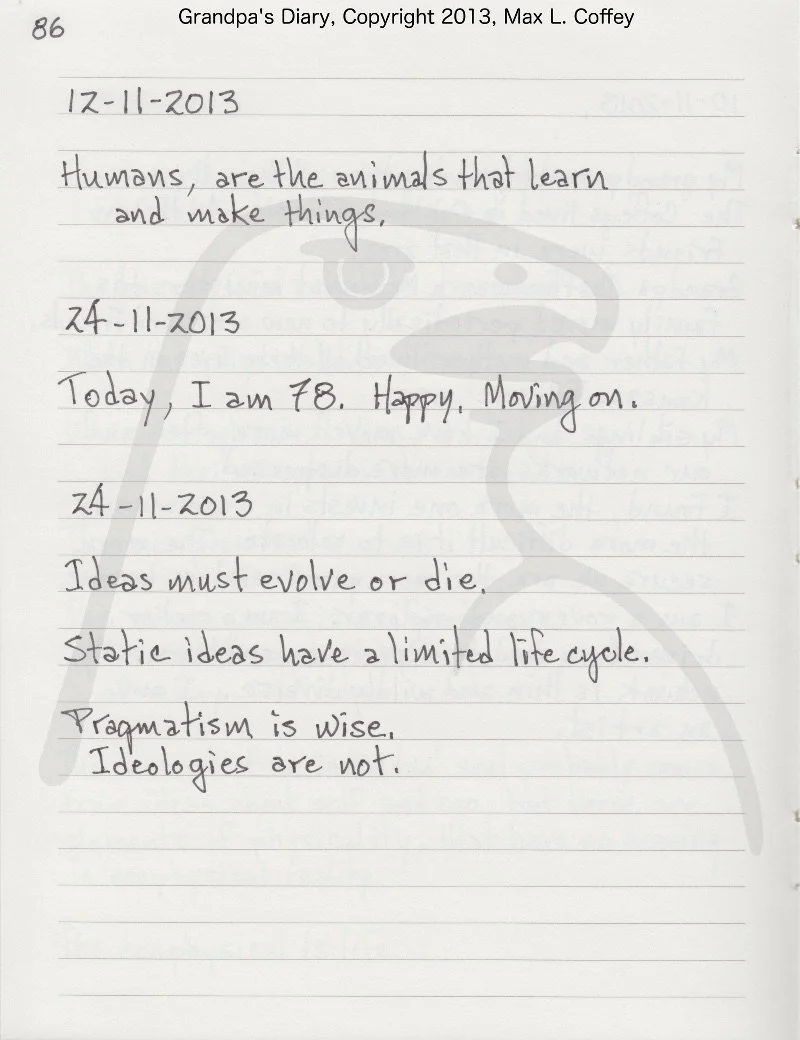 Grandpa's Diary, Copyright 2013, Max L. Coffey
86
12-11-2013
Humans, are the animals that learn
and make things.
24-11-2013
Today, I am 78. Happy. Moving on.
24-11-2013
Ideas must evolve or die.
Static ideas have a limited life cycle.
Pragmatism is wise.
Ideologies are not.